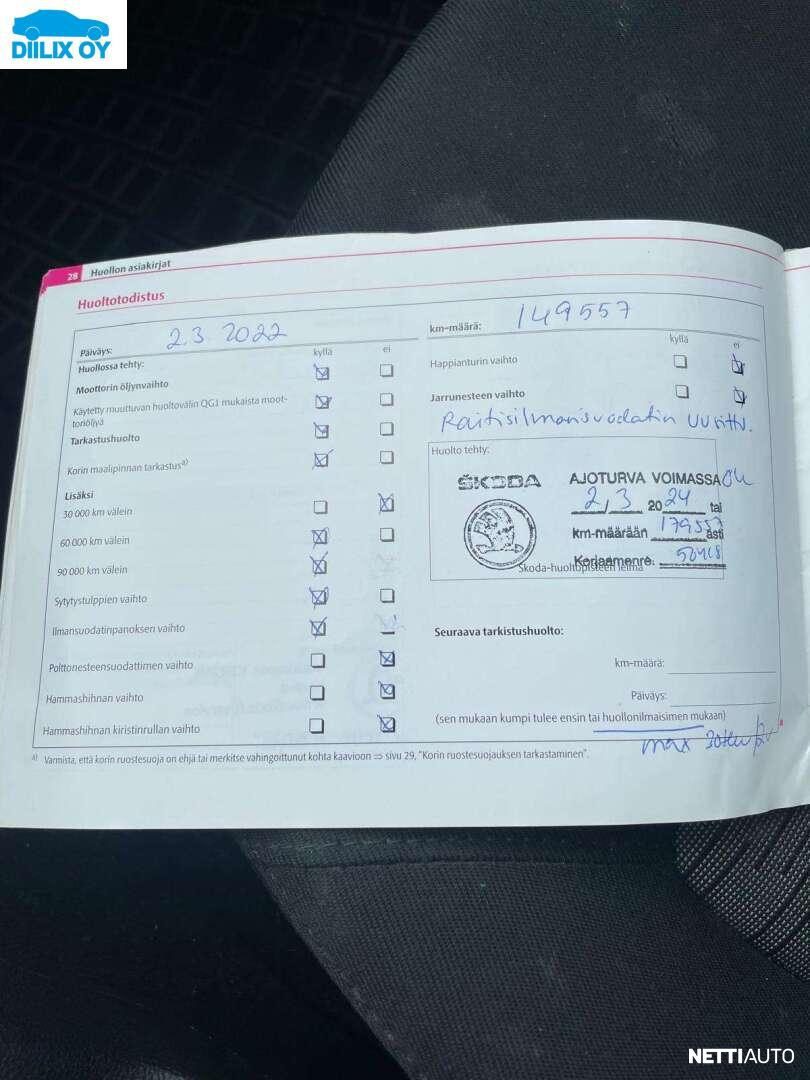 DIILIX OY
28 Huollon asiakirjat
Huoltotodistus
Päiväys: 2.3. 2022
Huollossa tehty: kyllä ei
Moottorin öljynvaihto
Käytetty muuttuvan huoltovälin QG1 mukaista moot-
toriöljyä
Tarkastushuolto
Korin maalipinnan tarkastus a)
Lisäksi
30 000 km välein
60 000 km välein
90 000 km välein
Sytytystulppien vaihto
Ilmansuodatinpanoksen vaihto
Polttonesteensuodattimen vaihto
Hammashihnan vaihto
Hammashihnan kiristinrullan vaihto
km-määrä: 149557
kyllä ei
Happianturin vaihto
Jarrunesteen vaihto
Raitisilmansuodatin uusittu.
Huolto tehty:
ŠKODA AJOTURVA VOIMASSA
2,3 2024 tai
km-määrään 179557 asti
Korjaamonro.
Skoda-huoltopisteen leima
Seuraava tarkistushuolto:
km-määrä:
Päiväys:
(sen mukaan kumpi tulee ensin tai huollonilmaisimen mukaan)
max 30tkm/2v
a) Varmista, että korin ruostesuoja on ehjä tai merkitse vahingoittunut kohta kaavioon ⇒ sivu 29, "Korin ruostesuojauksen tarkastaminen".
NETTIAUTO